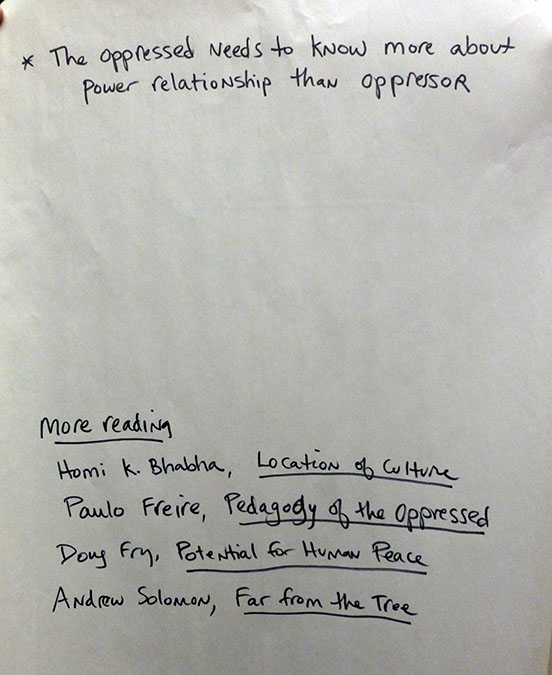 * The oppressed needs to know more about
power relationship than oppressor
More reading
Homi K. Bhabha, Location of Culture
Paulo Freire, Pedagogy of the Oppressed
Doug Fry, Potential for Human Peace
Andrew Solomon, Far from the Tree